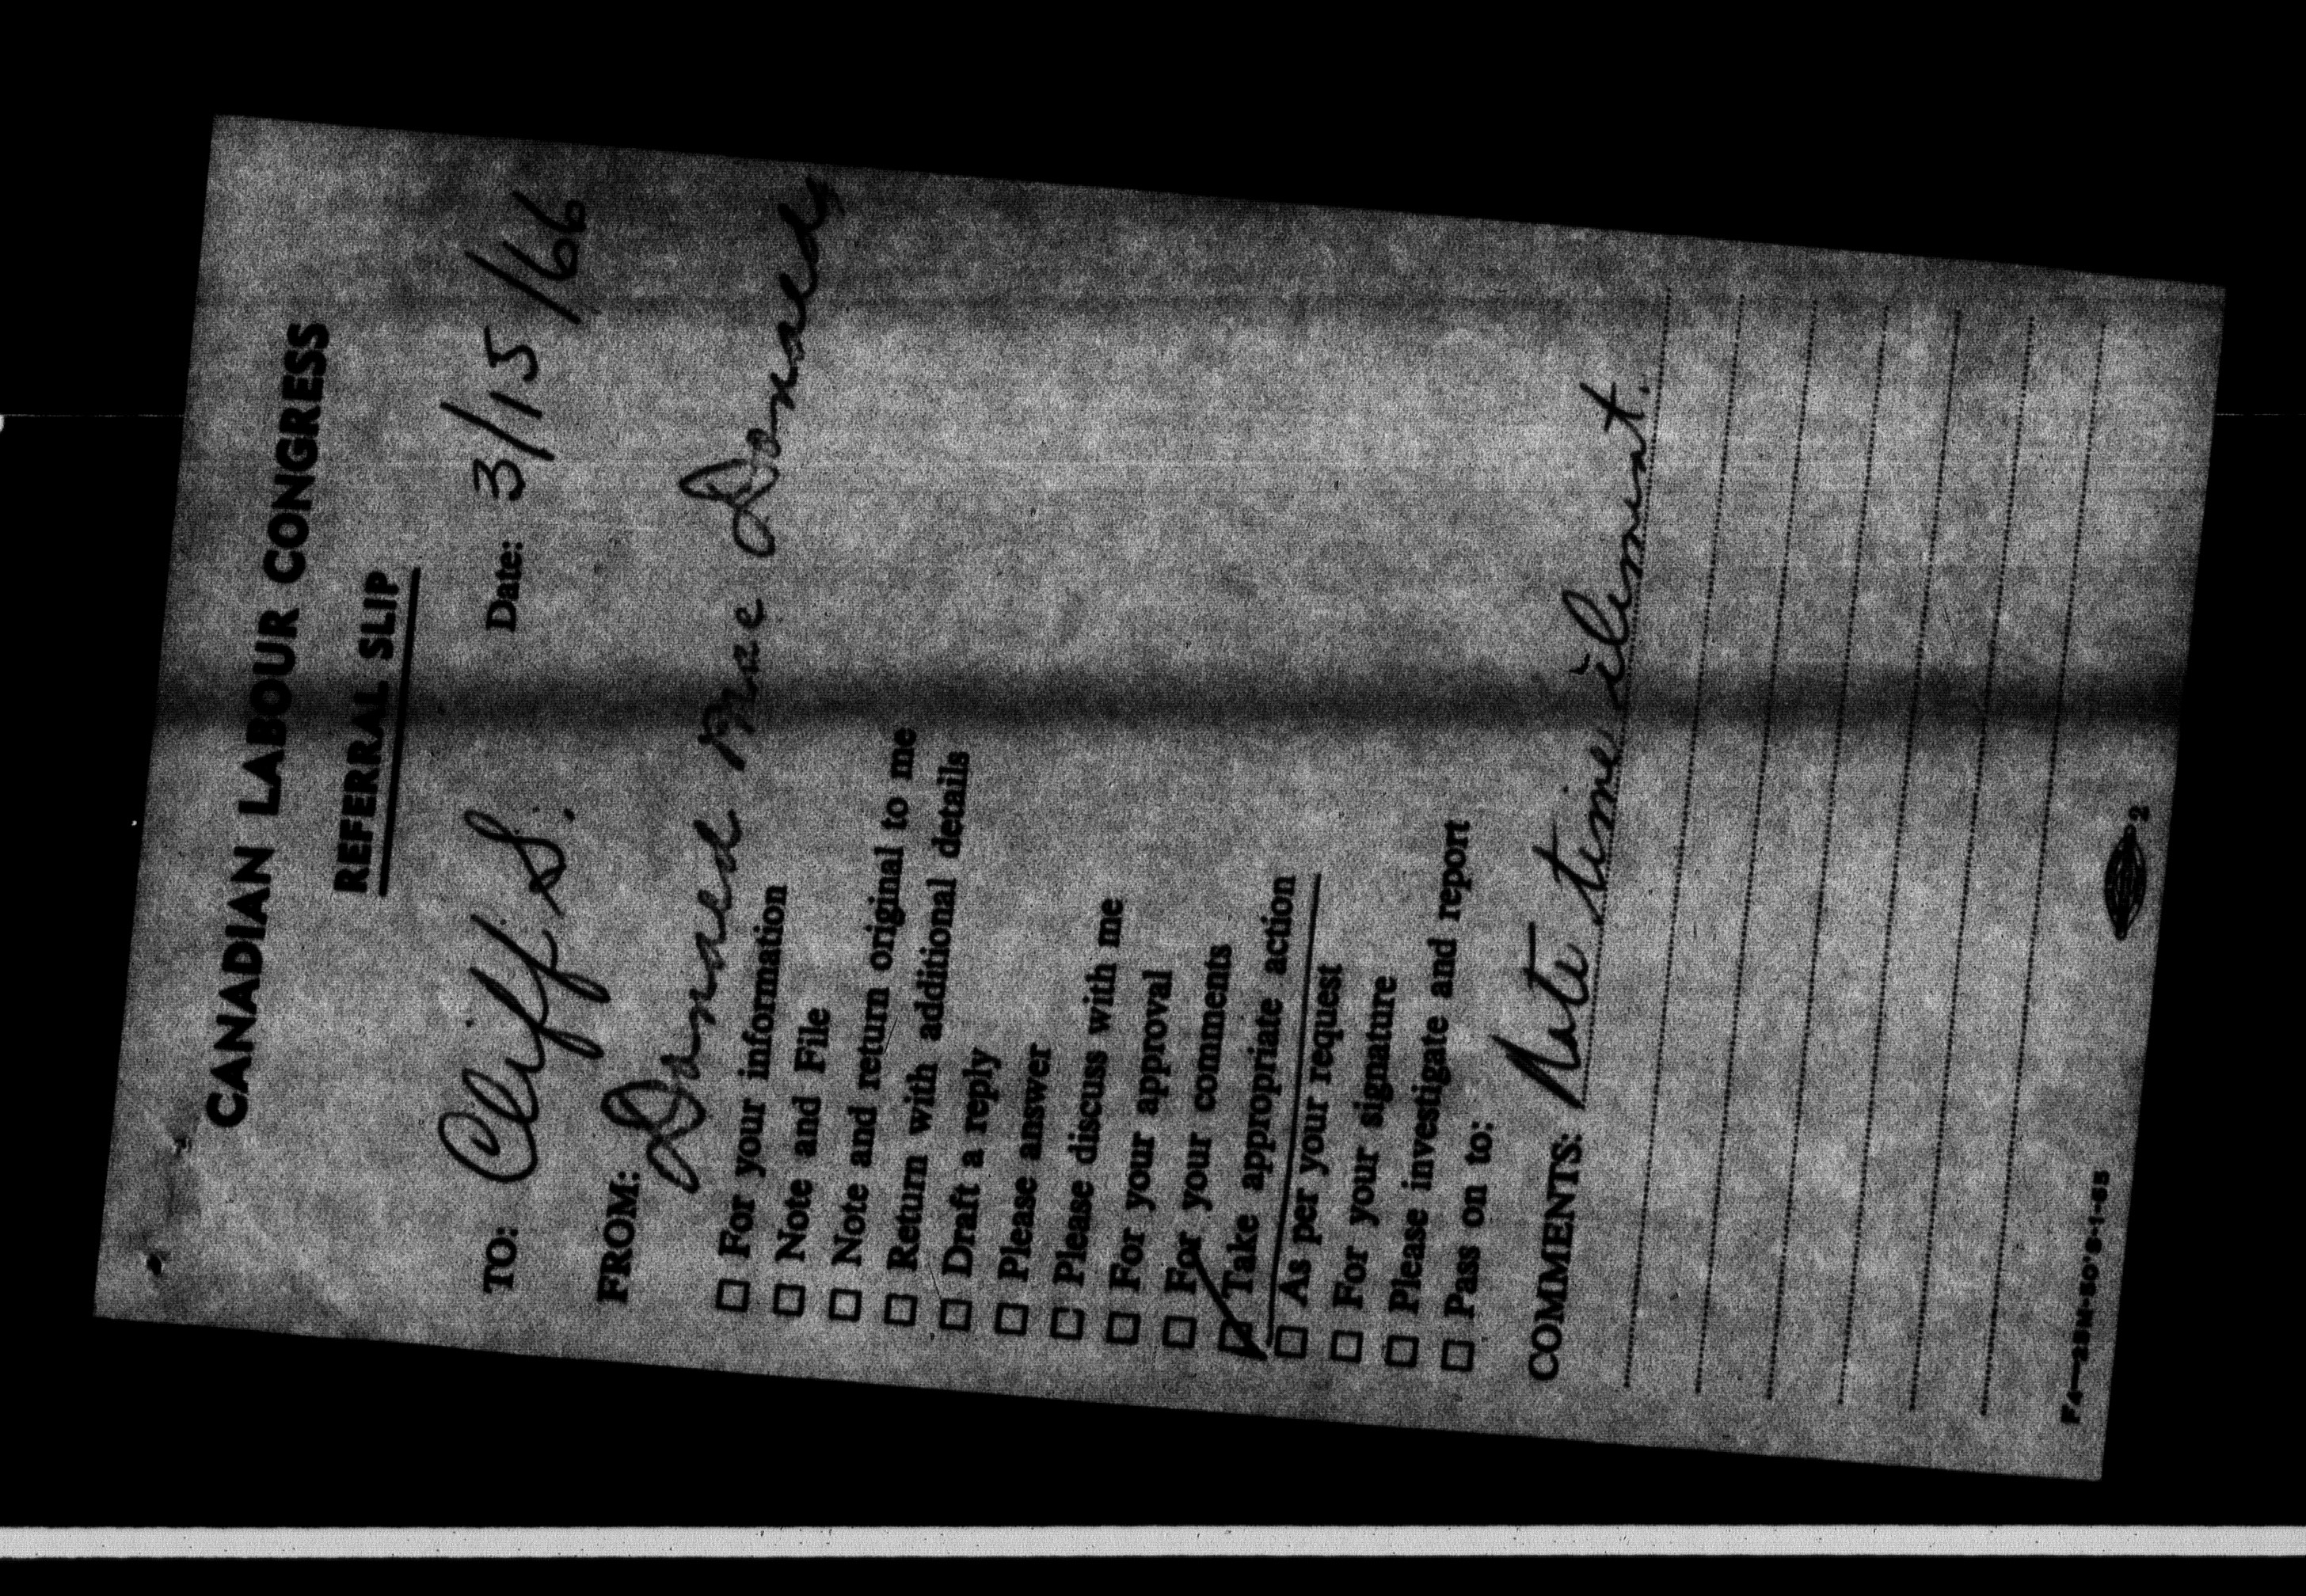 CANADIAN LABOUR CONGRESS
REFERRAL SLIP
TO: Cliff S. Date: 3/15/66
FROM: Donald Mac Donald
☐ For your information
☐ Note and File
☐ Note and return original to me
☐ Return with additional details
☐ Draft a reply
☐ Please answer
☐ Please discuss with me
☐ For your approval
☐ For your comments
☑ Take appropriate action
☐ As per your request
☐ For your signature
☐ Please investigate and report
☐ Pass on to:
COMMENTS: Note time element.
F4—25M-50'S-1-65
2